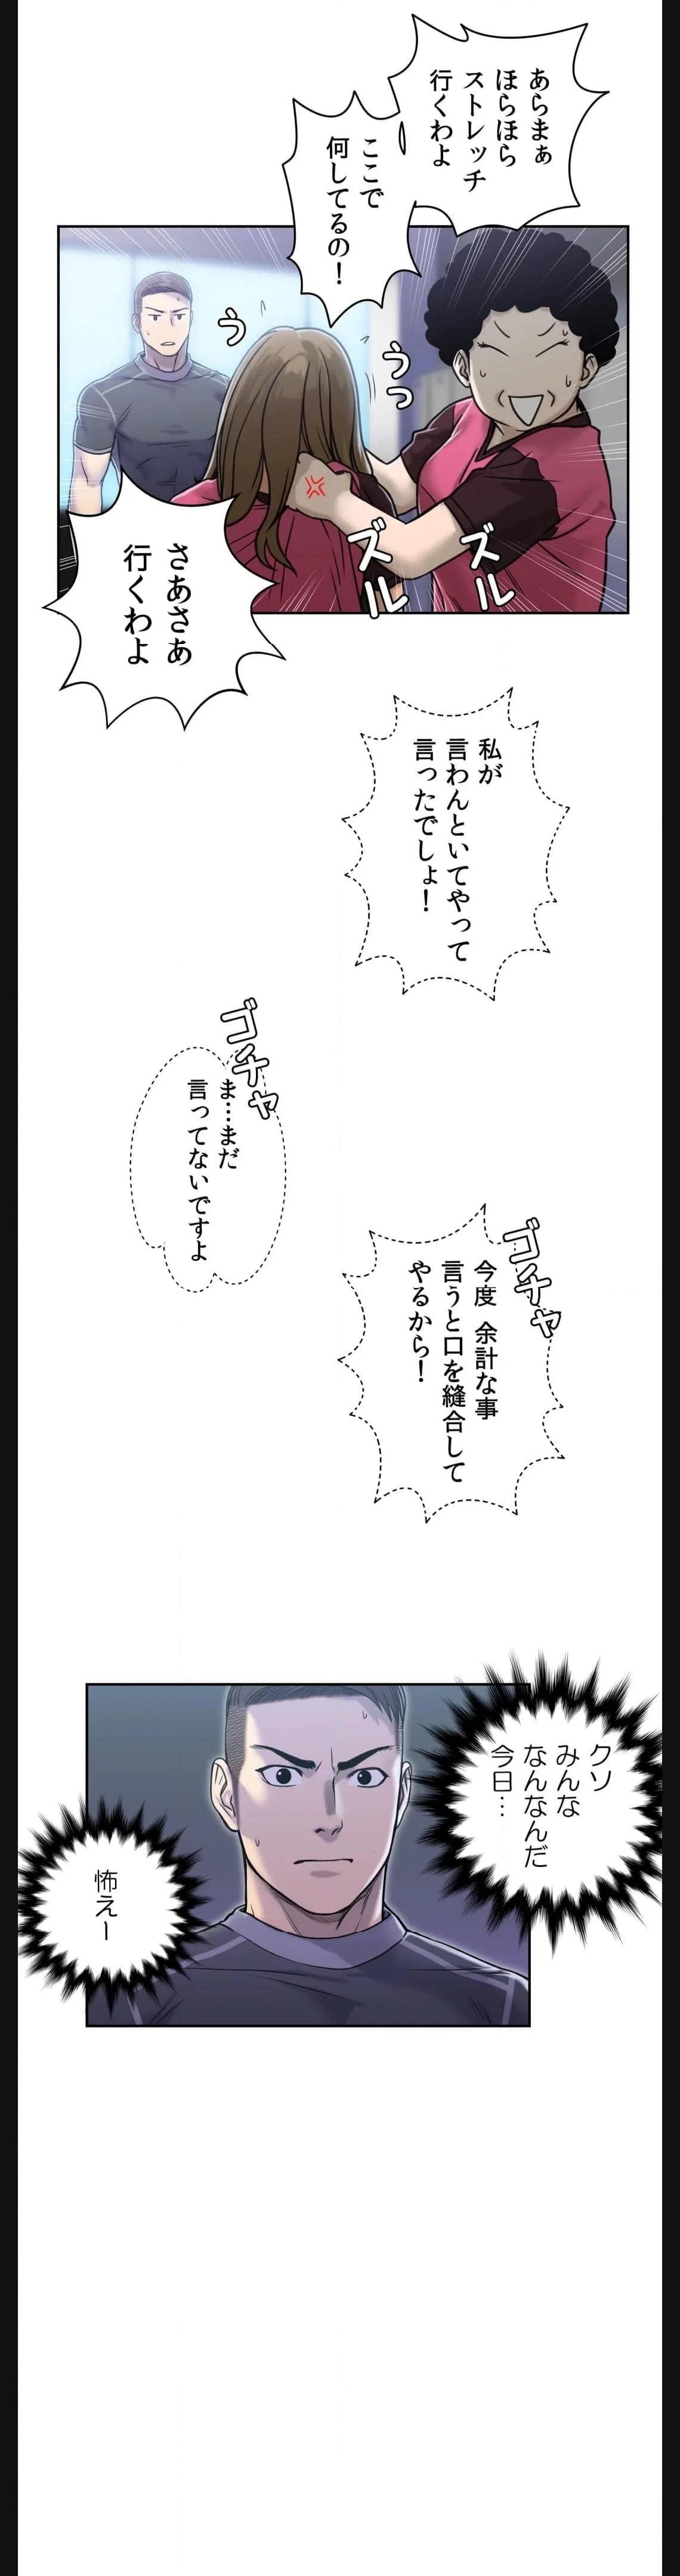 あらまぁ
ほらほら
ストレッチ
行くわよ
ここで
何してるの！
う
うっ
ズル
ズル
さあさあ
行くわよ
私が
言わんといてやって
言ったでしょ！
ゴチャ
ま…まだ
言ってないですよ
ゴチャ
今度 余計な事
言うと口を縫合して
やるから！
クソ
みんな
なんなんだ
今日…
怖えー